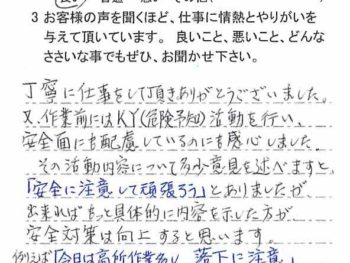 3 お客様の声を聞くほど、仕事に情熱とやりがいを
与えて頂いています。 良いこと、悪いこと、どんな
ささいな事でもぜひ、お聞かせ下さい。
丁寧に仕事をして頂きありがとうございました。
又、作業前にはKY(危険予知)活動を行い、
安全面にも配慮しているのにも感心しました。
その活動内容について多少意見を述べますと、
「安全に注意して頑張ろう」とありましたが
出来ればもっと具体的に内容を示した方が
安全対策は向上すると思います。
例えば「今日は高所作業多く、落下に注意」